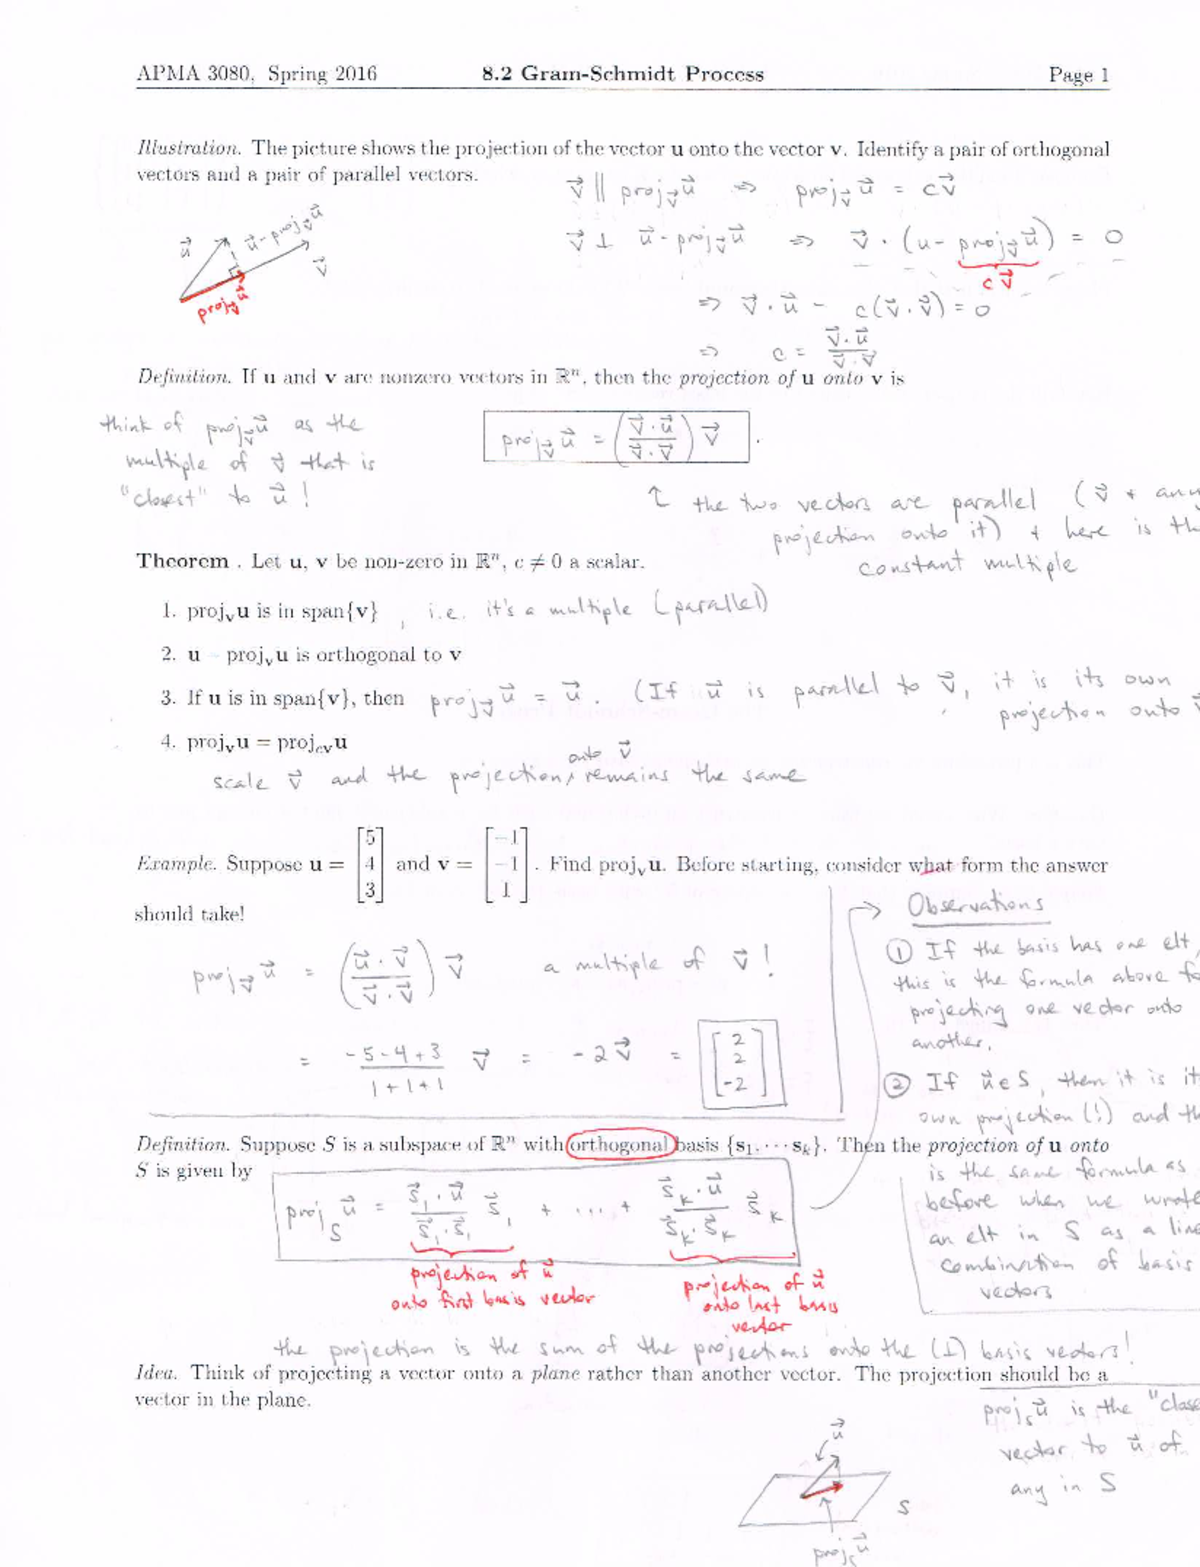 APMA 3080, Spring 2016 8.2 Gram-Schmidt Process Page 1
Illustration. The picture shows the projection of the vector u onto the vector v. Identify a pair of orthogonal
vectors and a pair of parallel vectors.
v⃗ ∥ proj_v⃗ u⃗ ⇒ proj_v⃗ u⃗ = cv⃗
u⃗ u⃗-proj_v⃗ u⃗ v⃗ proj_v⃗ u⃗
v⃗ ⊥ u⃗-proj_v⃗ u⃗ ⇒ v⃗ · (u-proj_v⃗ u⃗) = 0
cv⃗
⇒ v⃗ · u⃗ - c(v⃗ · v⃗) = 0
⇒ c = (v⃗ · u⃗)/(v⃗ · v⃗)
Definition. If u and v are nonzero vectors in ℝⁿ, then the projection of u onto v is
proj_v⃗ u⃗ = ((v⃗ · u⃗)/(v⃗ · v⃗)) v⃗ .
think of proj_v⃗ u⃗ as the
multiple of v⃗ that is
"closest" to u⃗ !
↑ the two vectors are parallel (v⃗ +
projection onto it) + here is
constant multiple
Theorem . Let u, v be non-zero in ℝⁿ, c ≠ 0 a scalar.
1. proj_v u is in span{v} , i.e. it's a multiple (parallel)
2. u - proj_v u is orthogonal to v
3. If u is in span{v}, then proj_v⃗ u⃗ = u⃗ . (If u⃗ is parallel to v⃗, it is its own
projection onto v⃗
4. proj_v u = proj_cv u
onto v⃗
scale v⃗ and the projection, remains the same
Example. Suppose u = [5 4 3] and v = [-1 -1 1] . Find proj_v u. Before starting, consider what form the answer
should take!
proj_v⃗ u⃗ = ((u⃗ · v⃗)/(v⃗ · v⃗)) v⃗ a multiple of v⃗ !
= (-5-4+3)/(1+1+1) v⃗ = -2v⃗ = [2 2 -2]
→ Observations
① If the basis has one elt,
this is the formula above
projecting one vector onto
another.
② If u⃗∈S, then it is
own projection (!) and
Definition. Suppose S is a subspace of ℝⁿ with orthogonal basis {s₁, ⋯ s_k}. Then the projection of u onto
S is given by
is the same formula as
before when we wrote
an elt in S as a
combination of basis
vectors
proj_S u⃗ = (s⃗₁ · u⃗)/(s⃗₁ · s⃗₁) s⃗₁ + ... + (s⃗_k · u⃗)/(s⃗_k · s⃗_k) s⃗_k
projection of u⃗
onto first basis vector
projection of u⃗
onto last basis
vector
the projection is the sum of the projections onto the (⊥) basis vectors!
Idea. Think of projecting a vector onto a plane rather than another vector. The projection should be a
vector in the plane.
proj_S u⃗ is the
vector to u⃗ of
any in S
u⃗
S
proj_S u⃗